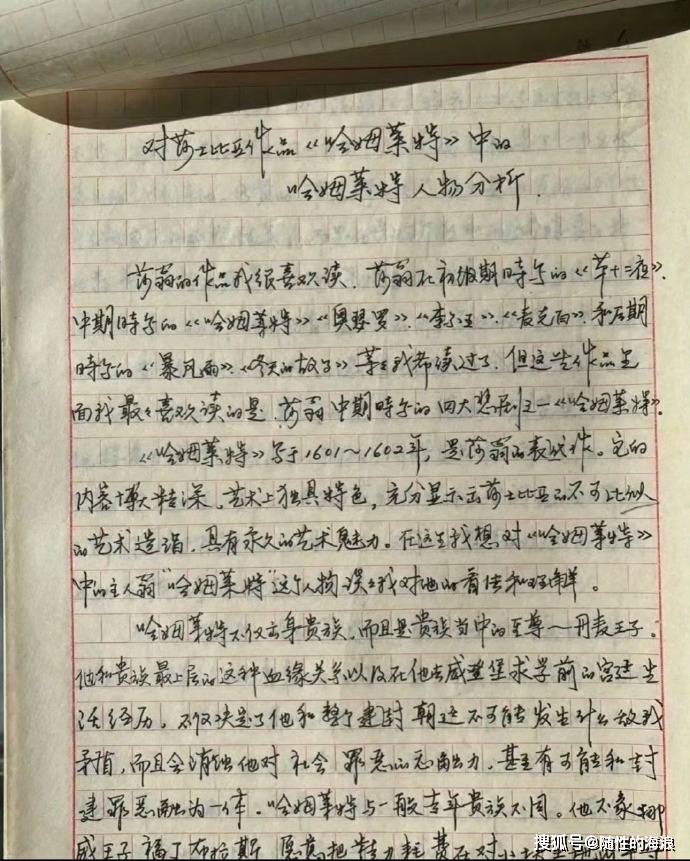 对莎士比亚作品《哈姆莱特》中的
哈姆莱特人物分析.
莎翁的作品我很喜欢读.莎翁在初级期时写的《第十二夜》.
中期时写的《哈姆莱特》《奥瑟罗》.《李尔王》.《麦克白》.和后期
时写的《暴风雨》.《冬天的故事》等々我都读过了.但这些作品里
面我最々喜欢读的是.莎翁中期时写的四大悲剧之一《哈姆莱特》.
《哈姆莱特》写于1601~1602年,是莎翁的表代作。它的
内容博大精深.艺术上独具特色,充分显示出莎士比亚的不可比似
的艺术造诣.具有永久的艺术魅力。在这里我想对《哈姆莱特》
中的主人翁"哈姆莱特"这个人物谈々我对他的看法和理解。
哈姆莱特不仅出身贵族.而且是贵族当中的至尊—丹麦王子.
他和贵族最上层的这种血缘关系以及在他去威登堡求学前的宫廷生
活经历.不仅决定了他和整个建封朝廷不可能发生什么敌我
矛盾,而且会消蚀他对社会罪恶的 力.甚至有可能和封
建罪恶融为一体.哈姆莱特与一般青年贵族不同。他不象挪
威王子福丁布拉斯.愿意把 力耗费在对小块土
搜狐号@随性的海浪